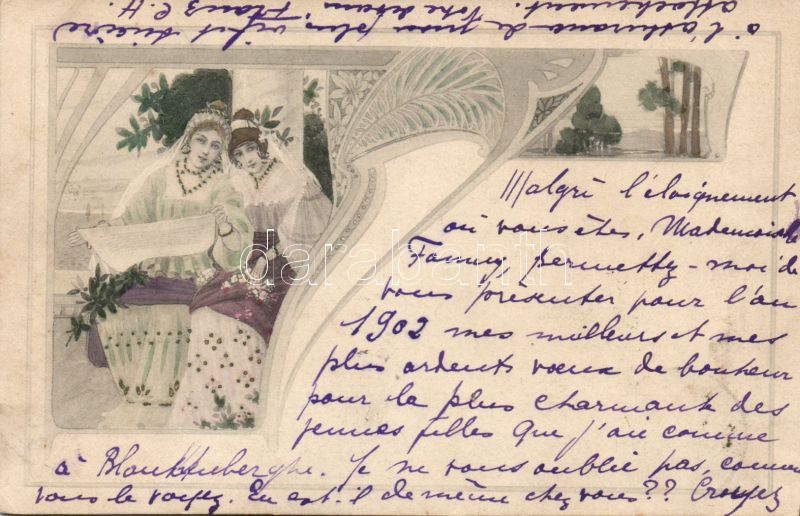 Malgré l'éloignement
où vous êtes, Mademoiselle
Fanny, permettez-moi de
vous présenter pour l'an
1902 mes meilleurs et mes
plus ardents vœux de bonheur
pour la plus charmante des
jeunes filles que j'aie connue
à Blankenberghe. Je ne vous oublie pas, comme
vous le voyez. En est-il de même chez vous?? Croyez
à l'assurance de mon plus vif et sincère
attachement. Votre Franz C. H.
darabanth